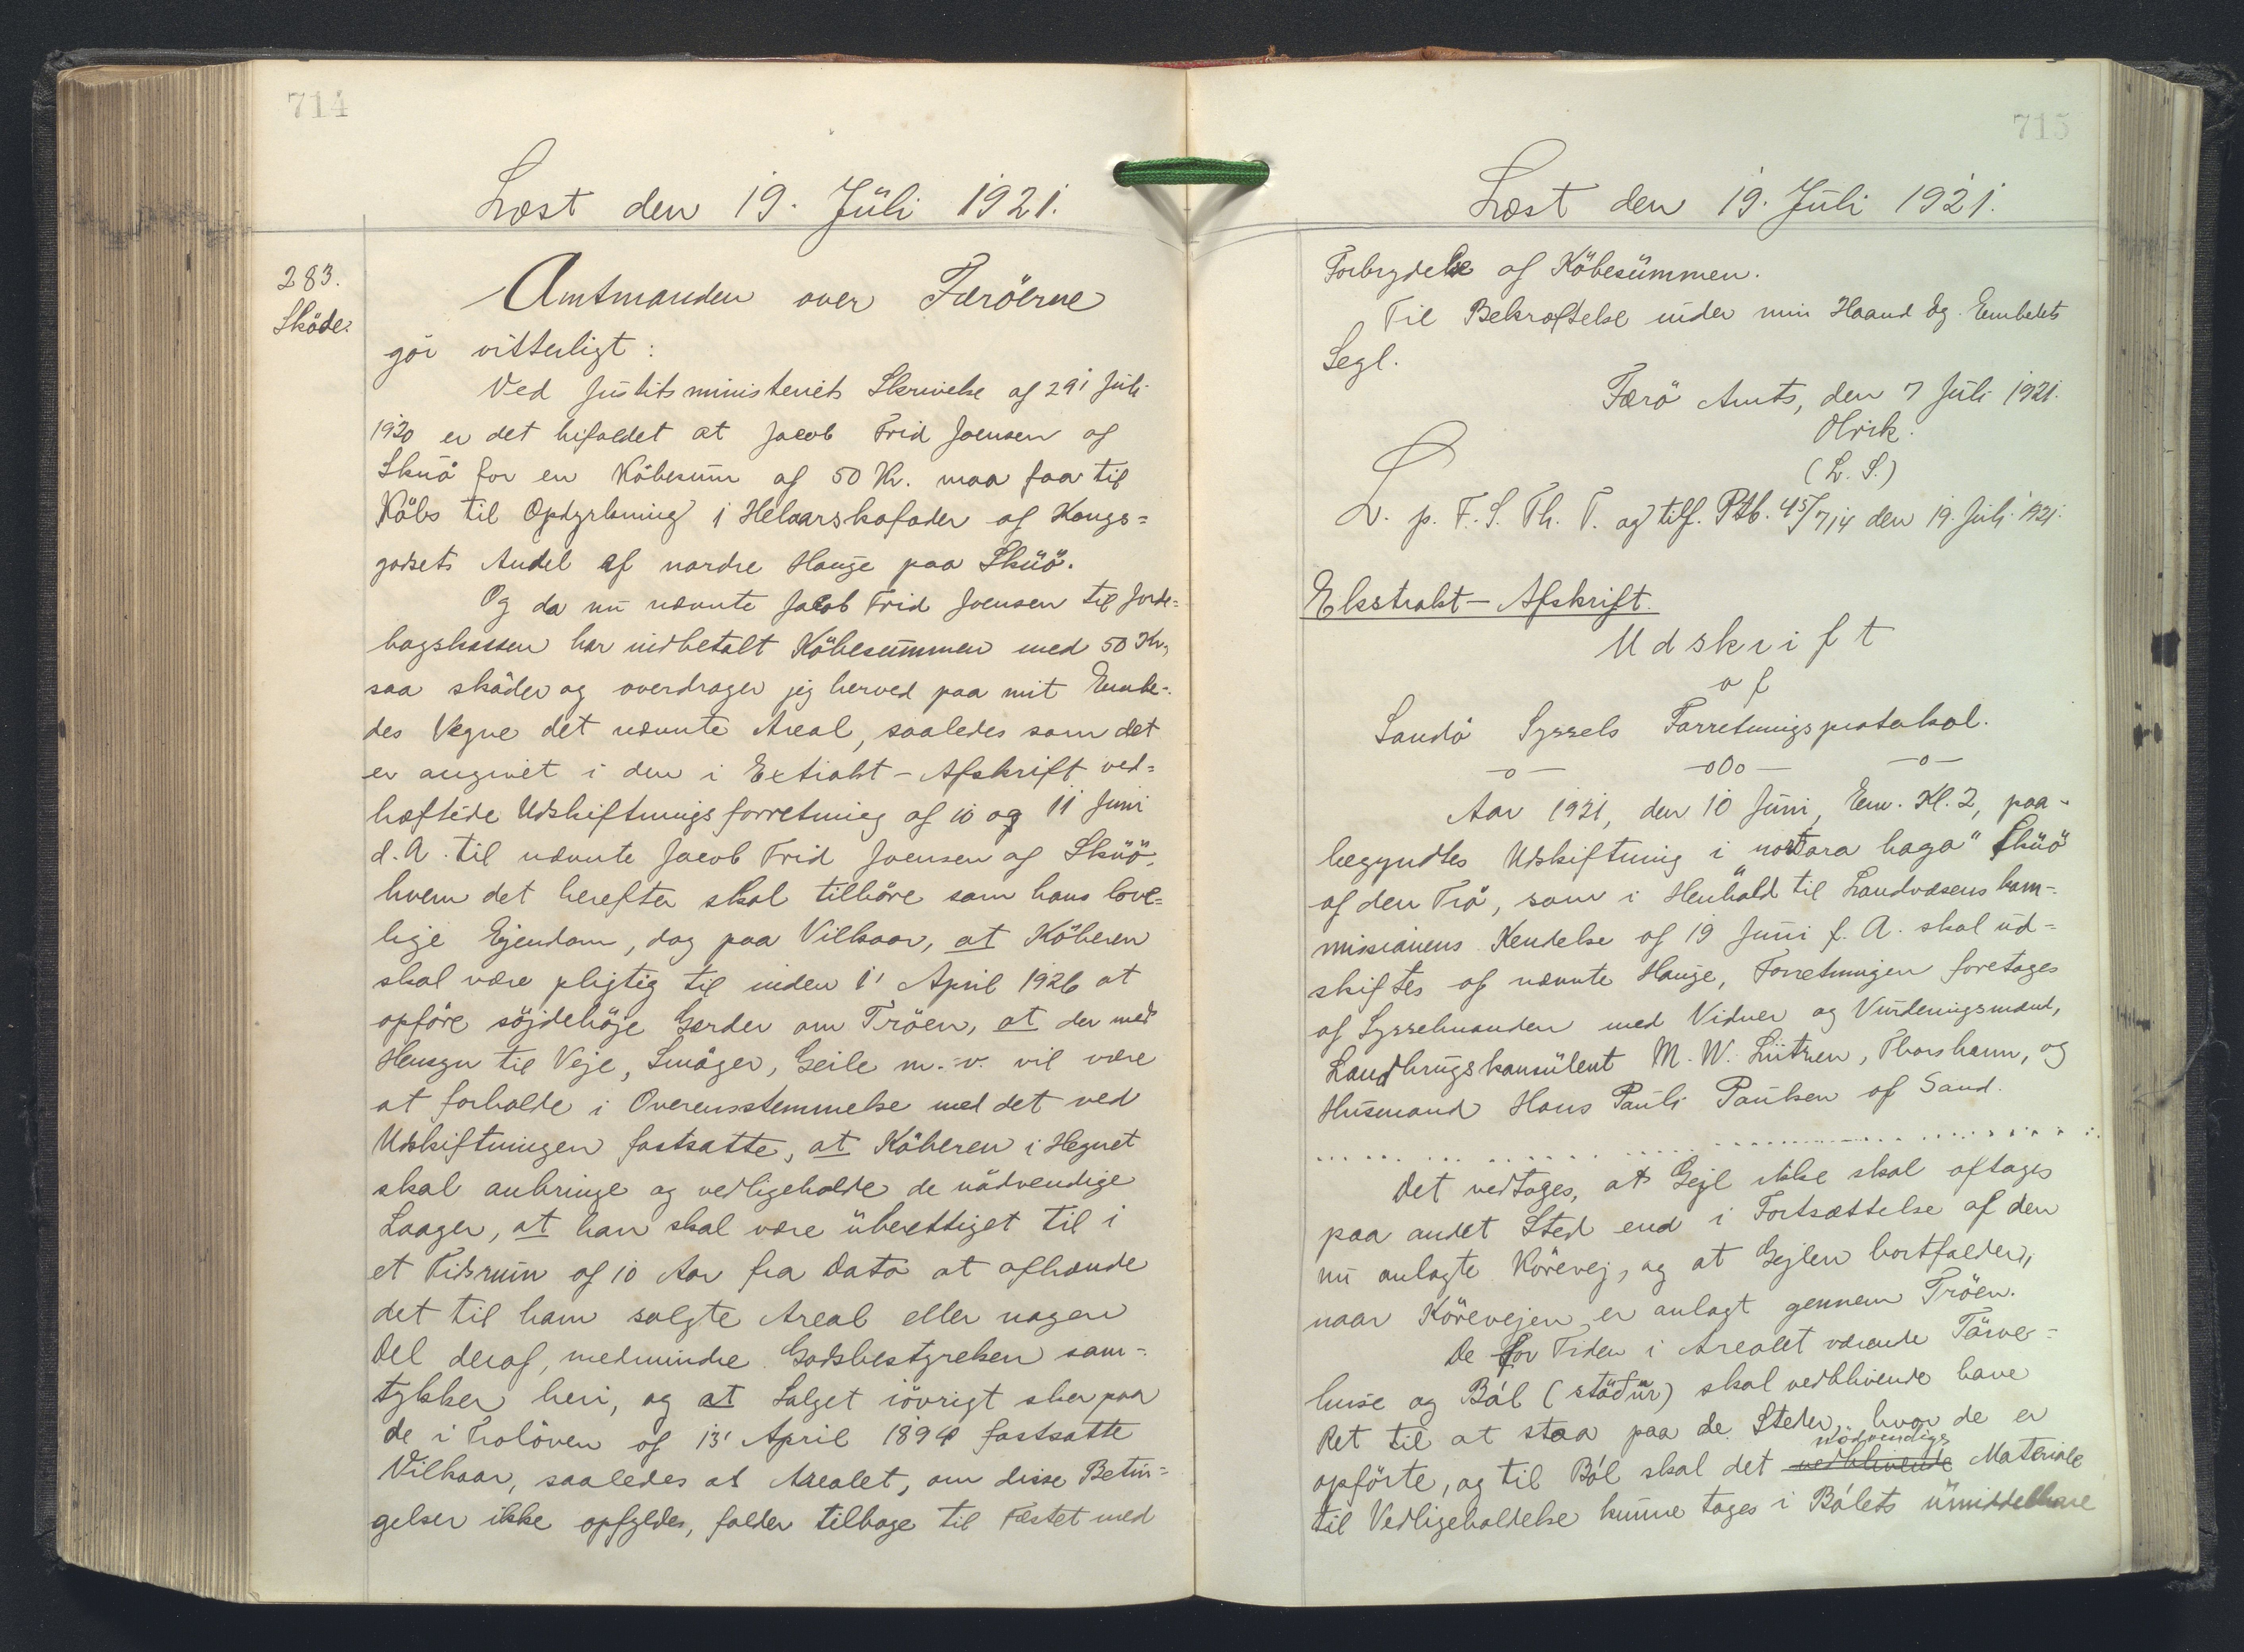 714
Læst den 19. Juli 1921.
283.
Sköde.
Amtmanden over Færöerne
gör vitterligt:
Ved Justitsministeriets Skrivelse af 29' Juli
1920 er det bifaldet at Jacob Frid Joensen af
Skuö for en Köbesum af 50 Kr. maa faa til
Köbs til Opdyrkning i Helaarskofoder af Kongs=
godsets Andel af nordre Hauge paa Skuö.
Og da nu nævnte Jacob Frid Joensen til Jorde=
bogskassen har indbetalt Köbesummen med 50 Kr,
saa sköder og overdrager jeg herved paa mit Embe-
des Vegne det nævnte Areal, saaledes som det
er angivet i den i Extrakt-Afskrift ved=
hæftede Udskiftningsforretning af 10 og 11 Juni
d. A. til nævnte Jacob Frid Joensen af Skuö,
hvem det herefter skal tilhöre som hans love=
lige Ejendom, dog paa Vilkaar, at Köberen
skal være pligtig til inden 1' April 1926 at
opföre söjdehöje Gærder om Tröen, at der med
Hensyn til Veje, Smöger, Geile m. v. vil være
at forholde i Overensstemmelse med det ved
Udskiftningen fastsatte, at Köberen i Hegnet
skal anbringe og vedligeholde de nödvendige
Laager, at han skal være uberettiget til i
et Tidsrum af 10 Aar fra Dato at afhænde
det til ham solgte Areal eller nogen
Del deraf, medmindre Godsbestyrelsen sam-
tykker heri, og at Salget iövrigt sker paa
de i Trolöven af 13' April 1894 fastsatte
Vilkaar, saaledes at Arealet, om disse Betin=
gelser ikke opfyldes, falder tilbage til Fæstet med
715
Læst den 19. Juli 1921.
Forbrydelse af Köbesummen.
Til Bekræftelse under min Haand Og Embeds
Segl.
Færö Amts, den 7 Juli 1921.
Olrik.
(L. S.)
L. p. F. S. Th. T. og tilf. Ptb. 45/714 den 19. Juli 1921.
Ekstrakt-Afskrift.
Udskrift
af
Sandö Syssels Forretningsprotokol.
—o— —oOo— —o—
Aar 1921, den 10 Juni, Em. Kl. 2, paa-
begyndtes Udskiftning i "nortara haga" Skuö
af den Trö, som i Henhold til Landvæsenskom-
missionens Kendelse af 19 Juni f. A. skal ud=
skiftes af nævnte Hauge, Forretningen foretages
af Sysselmanden med Vidner og Vurderingsmænd,
Landbrugskonsulent M. W. Lützen, Thorshavn, og
Husmand Hans Pauli Paulsen af Sand.
................................
Det vedtages, at Gejl ikke skal aftages
paa andet Sted end i Fortsættelse af den
nu anlagte Körevej, og at Gejlen bortfalder,
naar Körevejen er anlagt gennem Tröen.
De for Tiden i Arealet værende Törve=
huse og Ból (stöður) skal vedblivende have
Ret til at staa paa de Steder, hvor de er
opförte, og til Ból skal det vedblivende nödvendige Materiale
til Vedligeholdelse kunne tages i Bólets umiddelbare